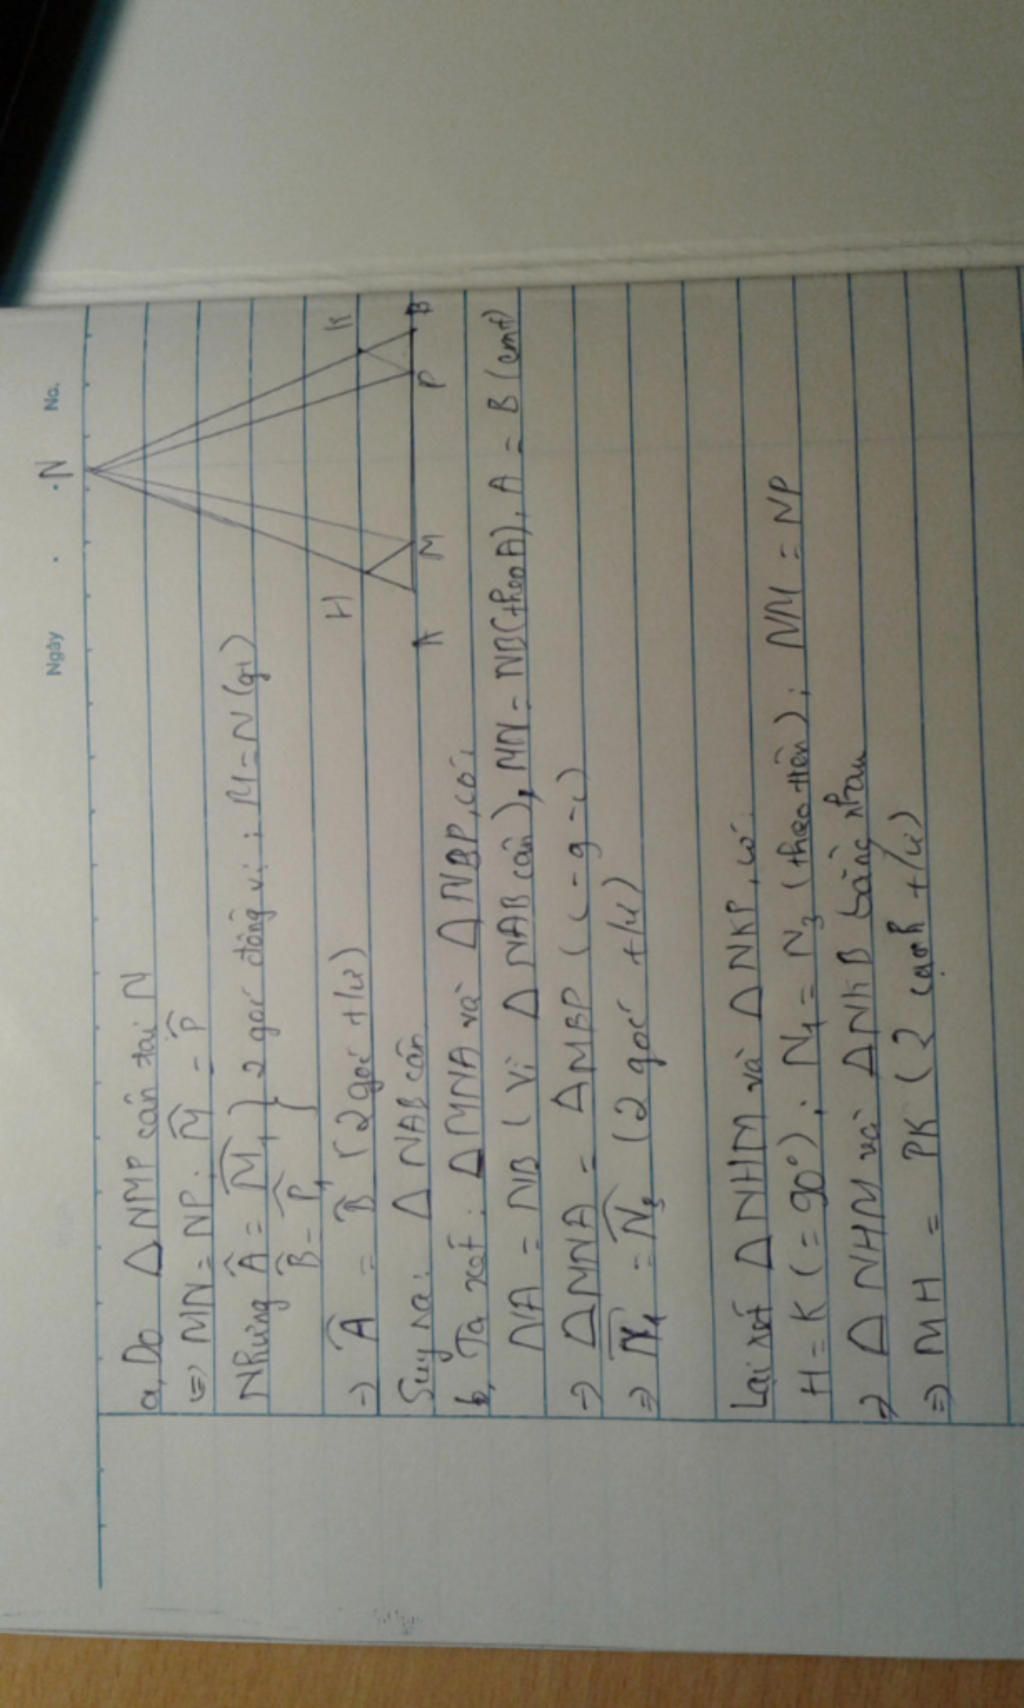 Ngày . . No.
N
H K
A M P B
a, Do △NMP cân tại N
⇒ MN = NP; M̂ = P̂
Nhưng Â = M̂₁ } 2 góc đồng vị; M = N (gt)
B̂ = P̂₁
→ Â = B̂ (2 góc t/ư)
Suy ra: △ NAB cân
b, Ta xét: △MNA và △NBP, có:
NA = NB (vì △ NAB cân), MN = NB (theo A), A = B (cmt)
→ △MNA = △MBP (c-g-c)
⇒ N̂₁ = N̂₃ (2 góc t/ư)
Lại xét △NHM và △NKP, có:
H = K (= 90°); N₁ = N₃ (theo trên); NM = NP
⇒ △ NHM và △NKB bằng nhau
⇒ MH = PK (2 cạnh t/ư)